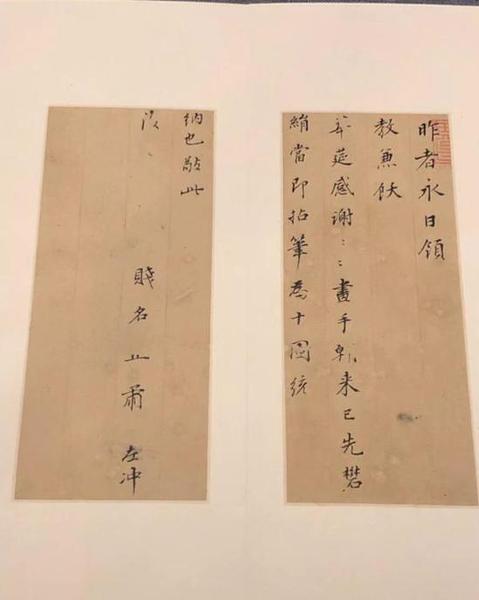 昨者永日領
教兼飫
華筵感謝：：畫手軋来已先礬
絹當即拈筆為十圖繳
納也敬此
賤名正肅 左冲